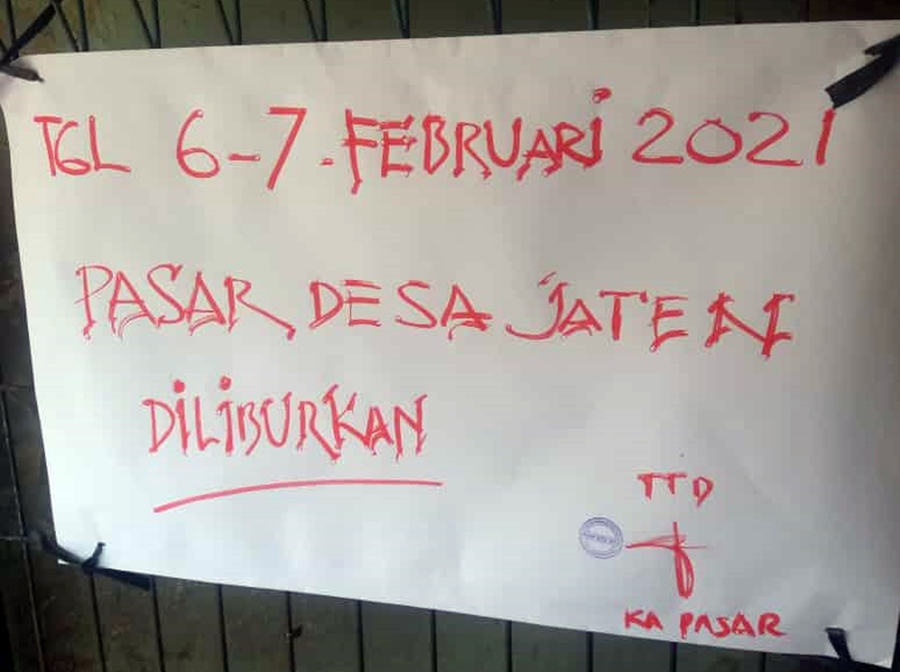 TGL 6-7-FEBRUARI 2021
PASAR DESA JATEN
DILIBURKAN
TTD
KA PASAR